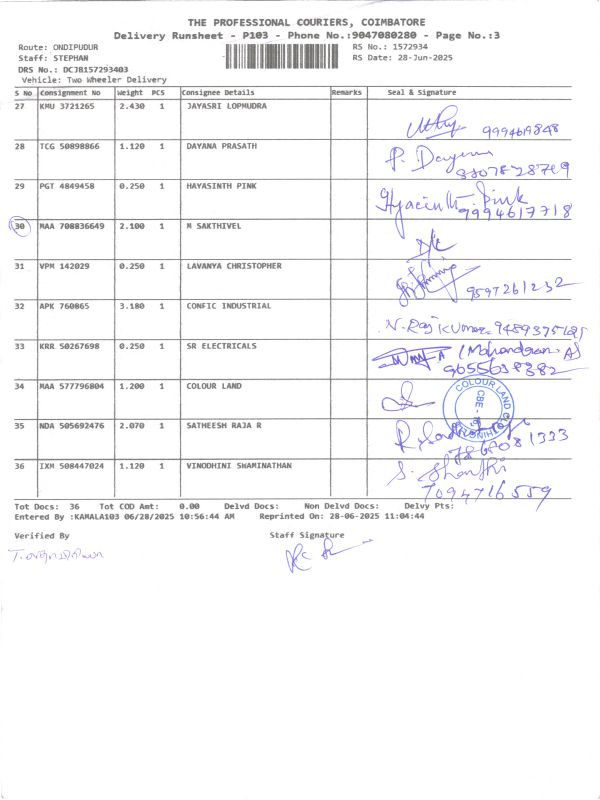 THE PROFESSIONAL COURIERS, COIMBATORE
Delivery Runsheet - P103 - Phone No.:9047080280 - Page No.:3
Route: ONDIPUDUR RS No.: 1572934
Staff: STEPHAN RS Date: 28-Jun-2025
DRS No.: DCJB157293403
Vehicle: Two Wheeler Delivery
S No Consignment No Weight PCS Consignee Details Remarks Seal & Signature
27 KMU 3721265 2.430 1 JAYASRI LOPMUDRA
28 TCG 50898866 1.120 1 DAYANA PRASATH
P. Dayana
29 PGT 4849458 0.250 1 HAYASINTH PINK
Hyacinth. Pink
9994617718
30 MAA 708836649 2.100 1 M SAKTHIVEL
31 VPM 142029 0.250 1 LAVANYA CHRISTOPHER
9597261232
32 APK 760865 3.180 1 CONFIC INDUSTRIAL
N. Raj Kumar
33 KRR 50267698 0.250 1 SR ELECTRICALS
34 MAA 577796804 1.200 1 COLOUR LAND
COLOUR LAND
CBE
35 NDA 505692476 2.070 1 SATHEESH RAJA R
36 IXM 508447024 1.120 1 VINODHINI SWAMINATHAN
S. Shanthi
7094716559
Tot Docs: 36 Tot COD Amt: 0.00 Delvd Docs: Non Delvd Docs: Delvy Pts:
Entered By :KAMALA103 06/28/2025 10:56:44 AM Reprinted On: 28-06-2025 11:04:44
Verified By Staff Signature